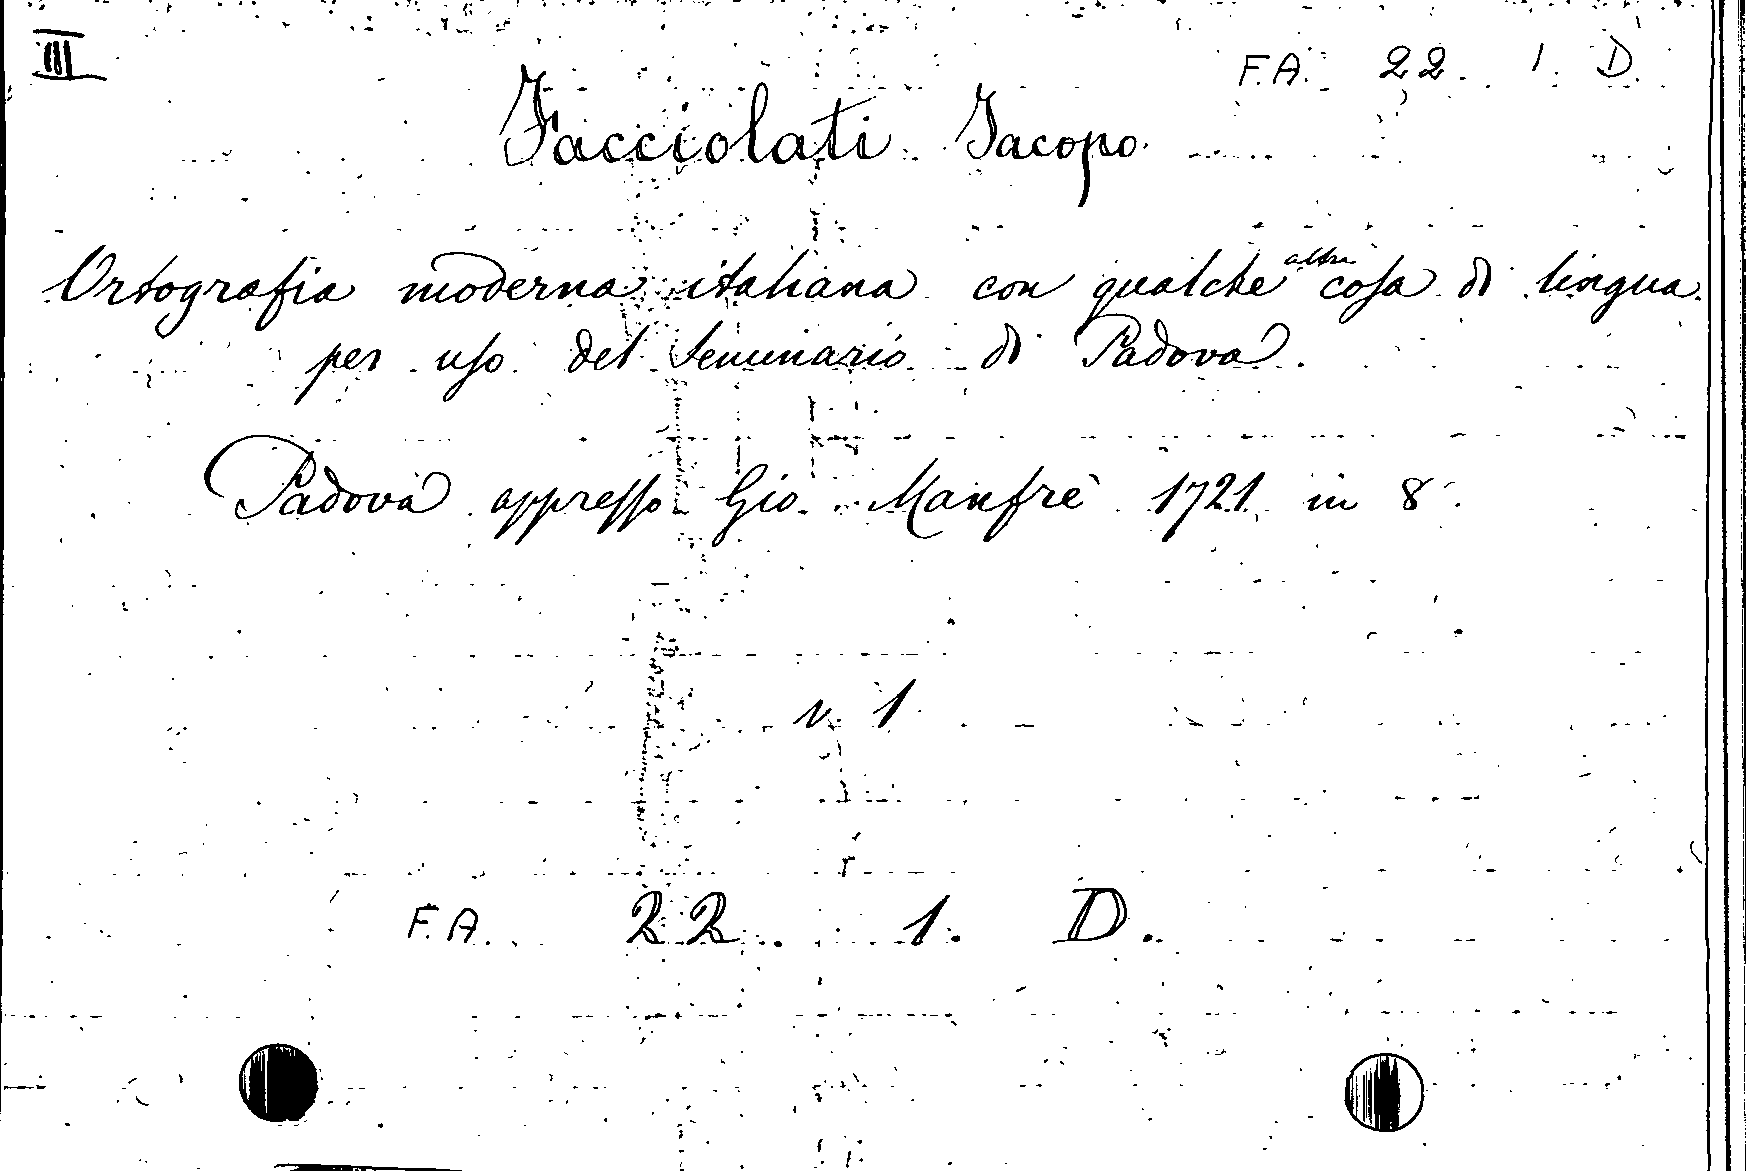 III
F.A. 22. 1. D.
Facciolati Jacopo.
Ortografia moderna italiana con qualche altra cosa di lingua
per uso del Seminario di Padova.
Padova appresso Gio. Manfrè 1721 in 8°.
v. 1
F.A. 22. 1. D.